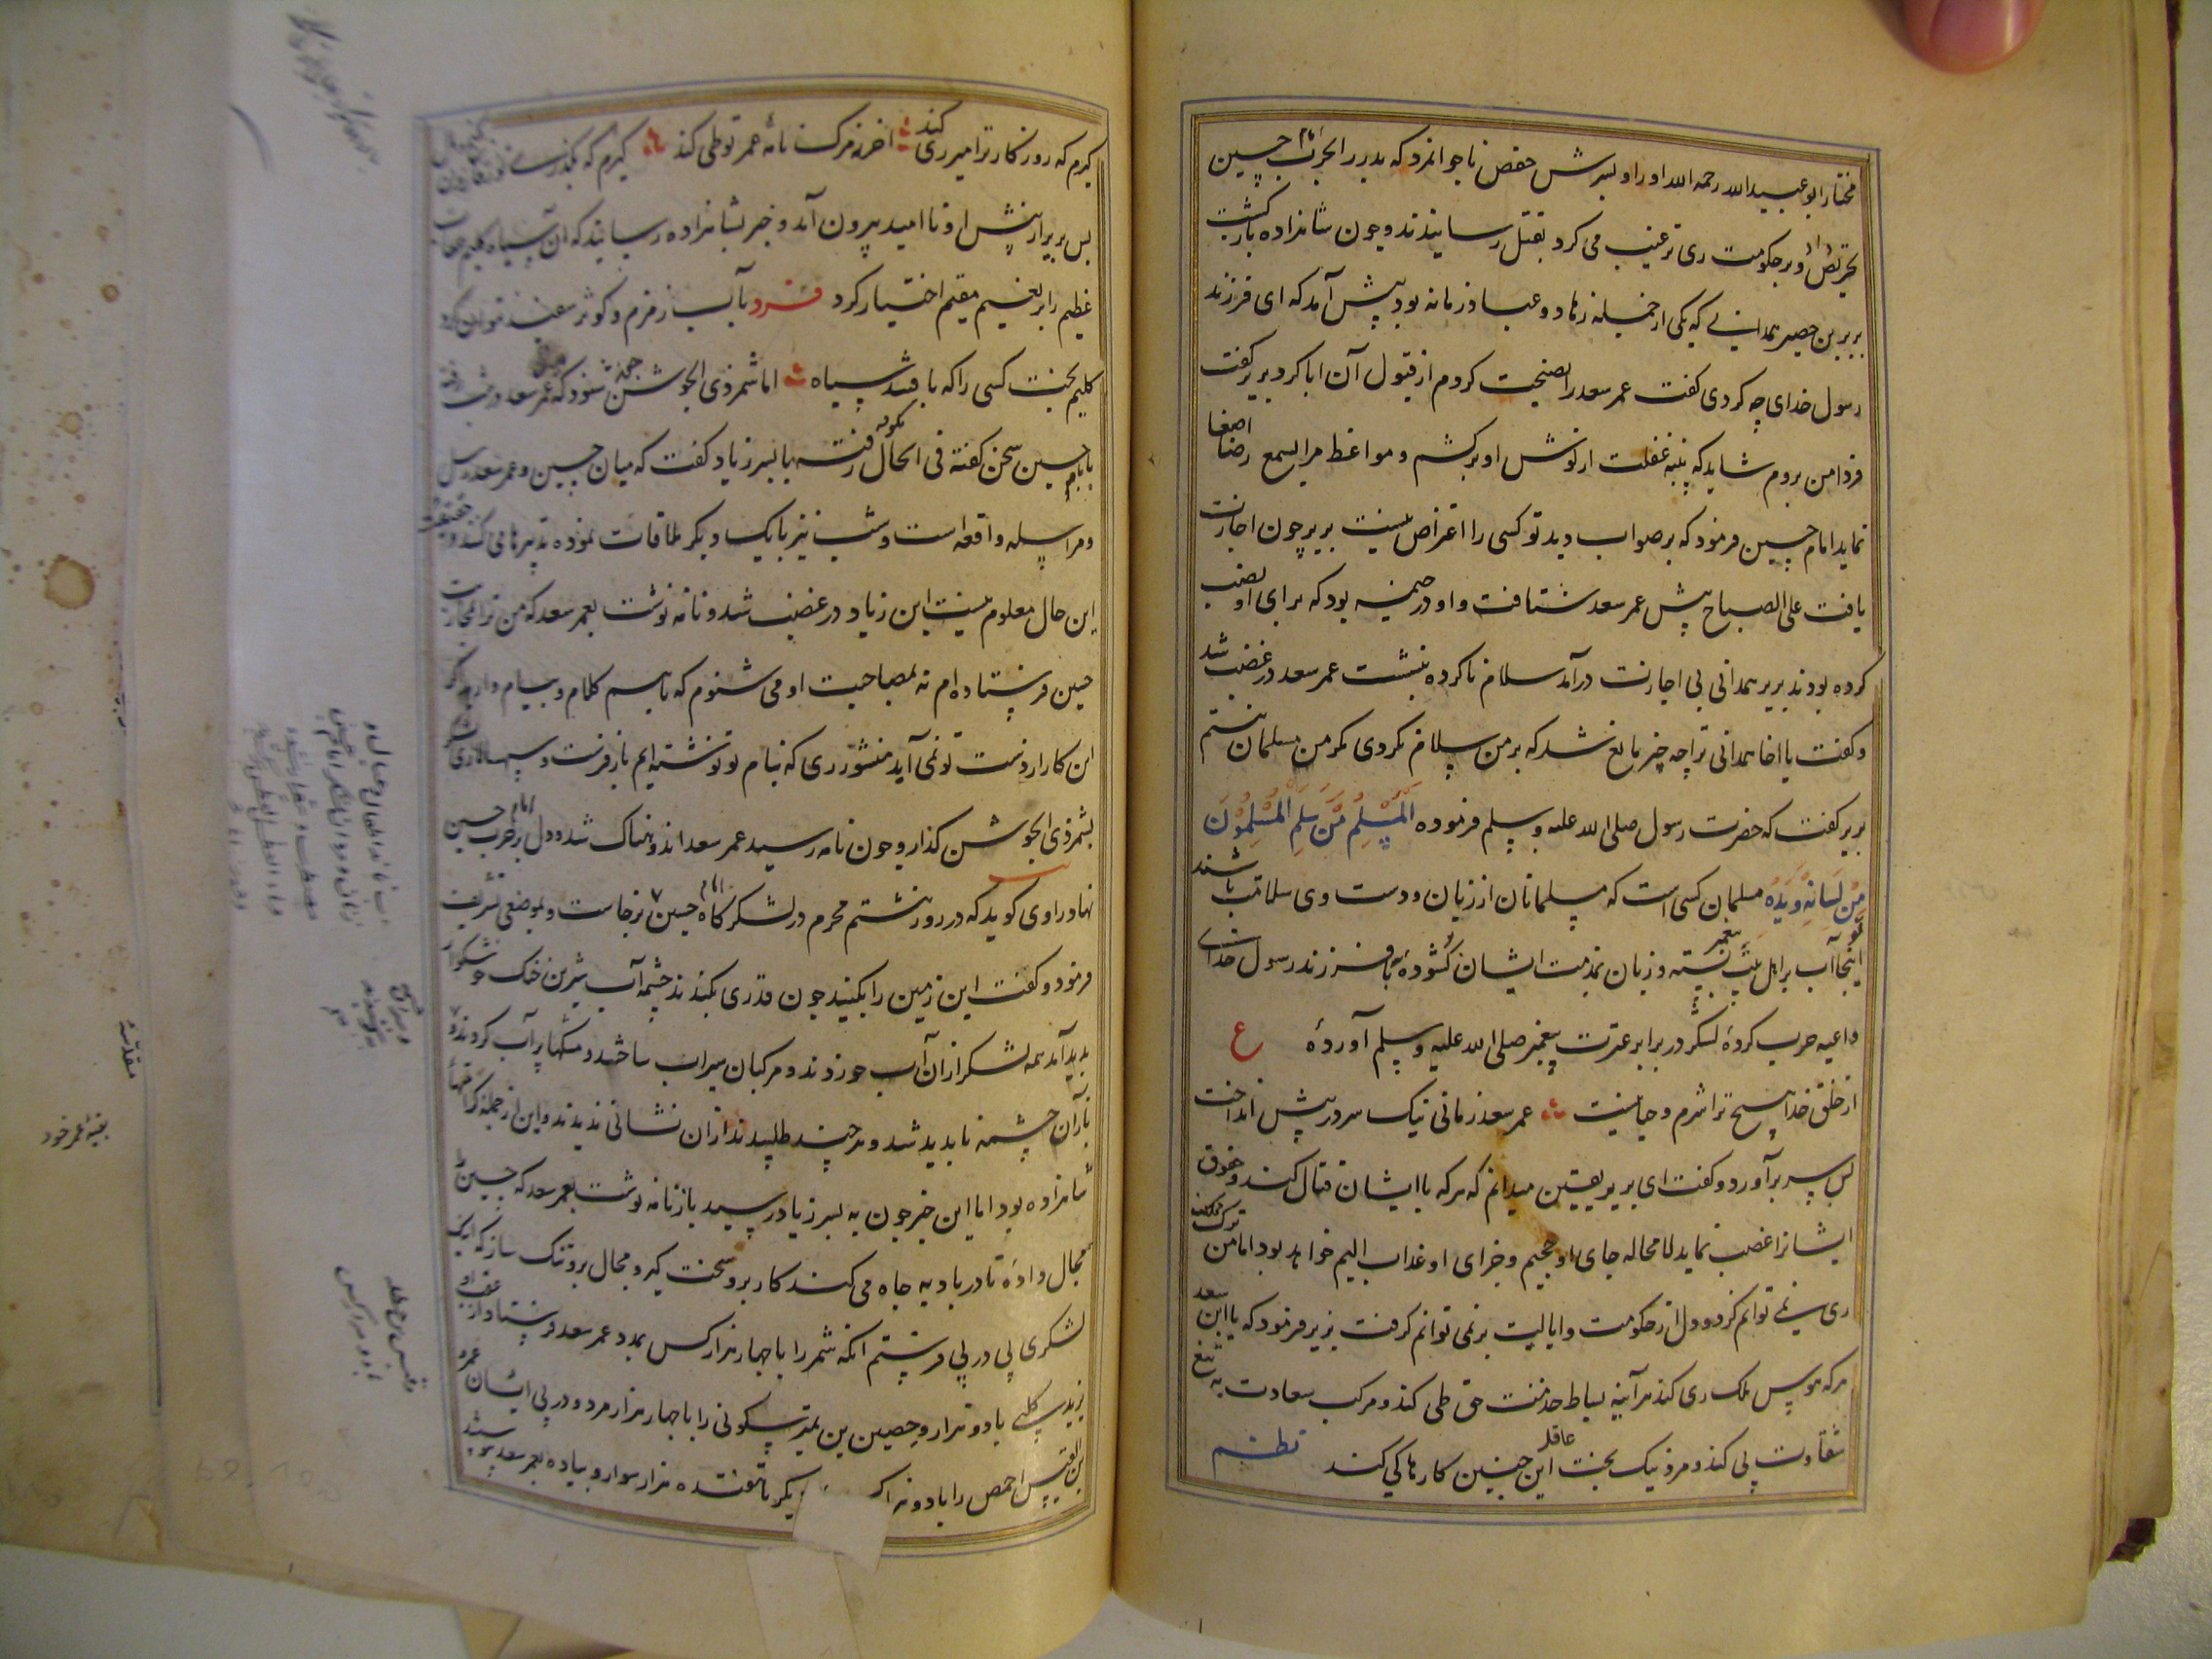 مختار ابو عبید الله رحمه الله او را و پسرش حفص ناجوانمرد که پدر را بحرب امام حسین
تحریض داد و بر حکومت ری ترغیب می کرد بقتل رسانیدند و چون شاهزاده بازگشت
بریر بن حصیر همدانی که یکی از جمله زهاد و عباد زمانه بود پیش آمد که ای فرزند
رسول خدای چه کردی گفت عمر سعد را نصیحت کردم از قبول آن ابا کرد بریر گفت
فردا من بروم شاید که پنبه غفلت از گوش او برکشم و مواعظ مرا بسمع رضا اصغا
نماید امام حسین فرمود که بر صواب دید تو کسی را اعتراض نیست بریر چون اجازت
یافت علی الصباح پیش عمر سعد شتافت و او در خیمه بود که برای او نصب
کرده بودند بریر همدانی بی اجازت درآمد سلام ناکرده بنشست عمر سعد در غضب شد
و گفت یا اخا همدانی ترا چه چیز مانع شد که بر من سلام نکردی مگر من مسلمان نیستم
بریر گفت که حضرت رسول صلی الله علیه وسلم فرموده اَلْمُسْلِمُ مَنْ سَلِمَ الْمُسْلِمُونَ
مِنْ لِسَانِهِ وَيَدِهِ مسلمان کسی است که مسلمانان از زبان و دست وی سلامت باشند
تو اینجا آب بر اهل بیت پیغمبر بسته و زبان بمذمت ایشان گشوده با فرزند رسول خدای
داعیه حرب کرده لشکر در برابر عترت پیغمبر صلی الله علیه وسلم آورده ع
از خلق خدا هیچ ترا شرم و حیا نیست عمر سعد زمانی نیک سر در پیش انداخت
پس سر برآورد و گفت ای بریر بیقین میدانم که هر که با ایشان قتال کند و حقوق
ایشانرا غصب نماید لامحاله جای او جحیم و جزای او عذاب الیم خواهد بود اما من ترک مملکت
ری نمی توانم کرد و دل از حکومت و ایالت بر نمی توانم گرفت بریر فرمود که یا ابن سعد
هر که هوس ملک ری کند هر آینه بساط خدمت حق طی کند و مرکب سعادت به تیغ
شقاوت پی کند و مرد نیک بخت عاقل این چنین کارها کی کند نظم
گیرم که روزگار ترا میر ری کند اخر نه مرگ نامه عمر تو طی کند گیرم که بگذری تو
پس بریر از پیش او ناامید بیرون آمد و خبر بشاهزاده رسانید که آن سیاه گلیم
عظیم را بر نعیم مقیم اختیار کرد فرد بآب زمزم و کوثر سفید نتوان کرد
گلیم بخت کسی را که بافتند سیاه اما شمر ذی الجوشن چون شنود که عمر سعد در شب
با امام حسین سخن گفته فی الحال بکوفه رفت با پسر زیاد گفت که میان حسین و عمر سعد رسل
و مراسله واقعه است و شب نیز با یک دیگر ملاقات نموده تدبیرها می کنند و حقیقت
این حال معلوم نیست ابن زیاد در غضب شد و نامه نوشت بعمر سعد که من ترا بمحاربت
حسین فرستاده ام نه بمصاحبت او می شنوم که باهم کلام و پیام دارید اگر
این کار از دست تو نمی آید منشور ری که بنام تو نوشته ایم باز فرست و سپهسالاری
بشمر ذی الجوشن گذار و چون نامه رسید عمر سعد اندوهناک شد و دل بر حرب امام حسین
نهاد راوی گوید که در روز هشتم محرم در لشکرگاه امام حسین برخاست و بموضعی تشریف
فرمود و گفت این زمین را بکنید چون قدری بکندند چشمه آب شیرین خنک خوشگوار
پدید آمد همه لشکر از ان آب خوردند و مرکبان سیراب ساختند و مشکها پر آب کردند و
باز آن چشمه ناپدید شد و هر چند طلبیدند از ان نشانی ندیدند و این از جمله کرامتهای
شاهزاده بود اما این خبر چون به پسر زیاد رسید باز نامه نوشت بعمر سعد که حسین را
مجال داده تا در بادیه چاه می کند کار برو سخت گیر و مجال برو تنگ ساز که اینک
لشکری پی در پی فرستم انگه شمر را با چهار هزار کس بمدد عمر سعد فرستاد و از عقب او
یزید کلبی با دو هزار و حصین بن نمیر سکونی را با چهار هزار مرد و در پی ایشان عمرو
بن القیس احمص را با دو هزار دیگر تا هفتده هزار سوار و پیاده بعمر سعد پیوستند
مقدّمهٔ
بقیه عمر خود